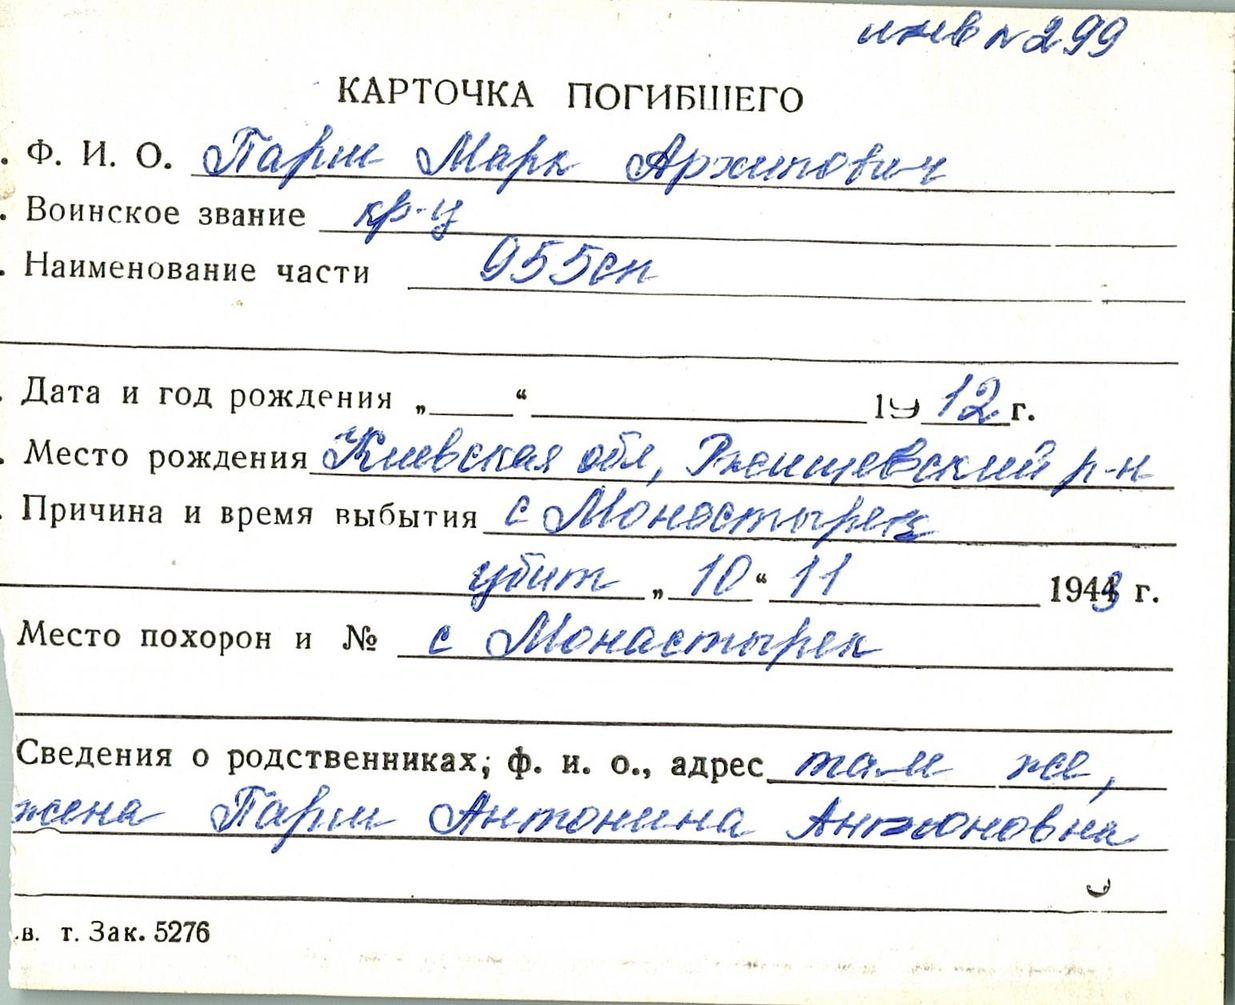 инв № 299
КАРТОЧКА ПОГИБШЕГО
. Ф. И. О. Париш Марк Архипович
. Воинское звание кр-ц
. Наименование части 955сп
. Дата и год рождения „ “ 1912 г.
. Место рождения Киевская обл, Ржищевский р-н
. Причина и время выбытия с Монастырек
убит „ 10 “ 11 1943 г.
Место похорон и № с Монастырек
Сведения о родственниках; ф. и. о., адрес там же,
жена Париш Антонина Антоновна
.в. т. Зак. 5276